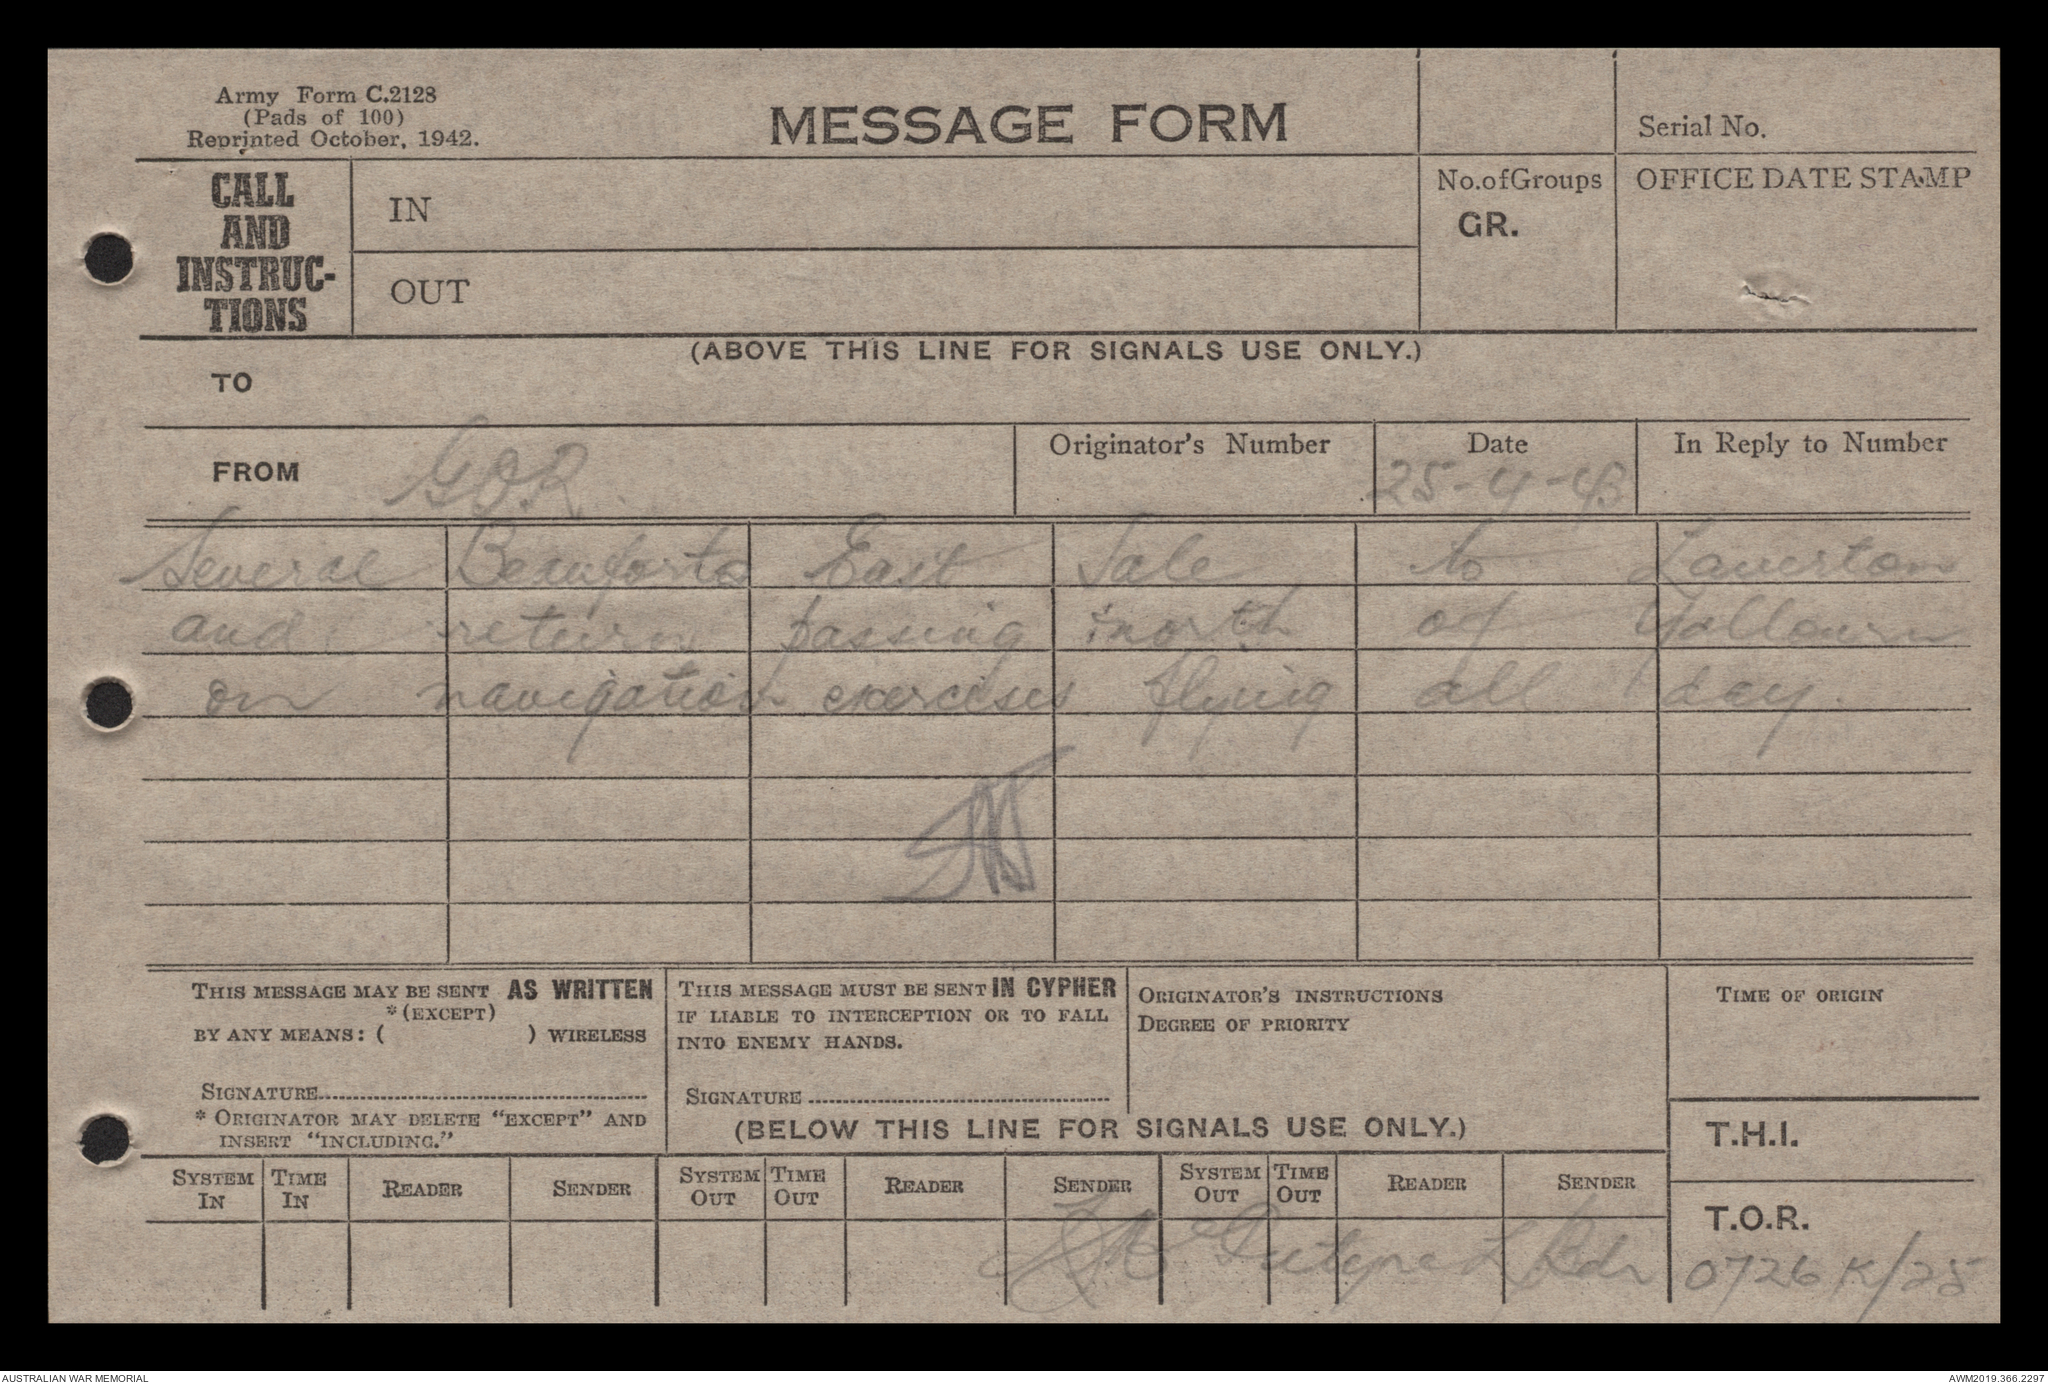 Army Form C.2128
(Pads of 100)
Reprinted October, 1942.
MESSAGE FORM
Serial No.
CALL AND INSTRUC-TIONS
IN
OUT
No.ofGroups
GR.
OFFICE DATE STAMP
(ABOVE THIS LINE FOR SIGNALS USE ONLY.)
TO
FROM G.O.R.
Originator's Number
Date
25-4-43
In Reply to Number
Several Beauforts East Sale to Laverton
and return passing north of Yallourn
on navigation exercises flying all day.
THIS MESSAGE MAY BE SENT AS WRITTEN
*(EXCEPT)
BY ANY MEANS: ( ) WIRELESS
SIGNATURE
* ORIGINATOR MAY DELETE "EXCEPT" AND
INSERT "INCLUDING."
THIS MESSAGE MUST BE SENT IN CYPHER
IF LIABLE TO INTERCEPTION OR TO FALL
INTO ENEMY HANDS.
SIGNATURE
ORIGINATOR'S INSTRUCTIONS
DEGREE OF PRIORITY
TIME OF ORIGIN
(BELOW THIS LINE FOR SIGNALS USE ONLY.)
T.H.I.
SYSTEM IN
TIME IN
READER
SENDER
SYSTEM OUT
TIME OUT
READER
SENDER
SYSTEM OUT
TIME OUT
READER
SENDER
T.O.R.
L/Bdr
0726K/25
AUSTRALIAN WAR MEMORIAL
AWM2019.366.2297